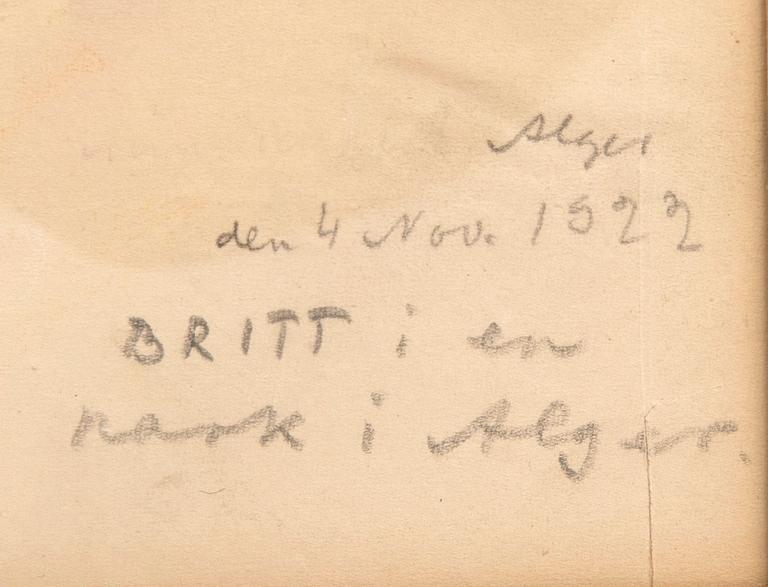 Alger
den 4 Nov. 1922
BRITT i en
park i Alger.